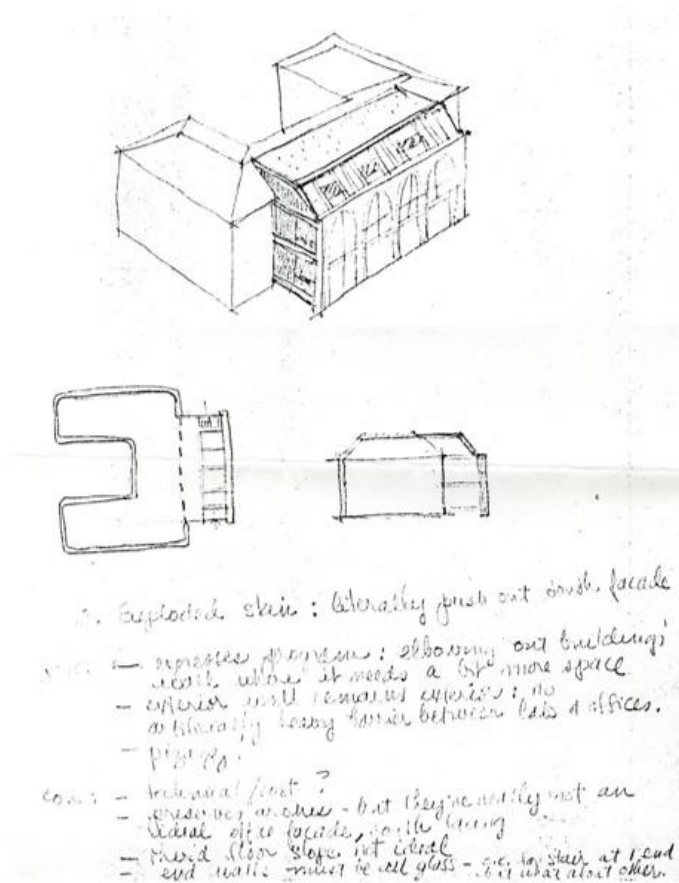 Exploded skin : literally push out south facade
— expresses program : elbowing out building's
walls where it needs a bit more space
— exterior wall remains exterior : no
artificially heavy barrier between labs & offices.
—
cons : — technical / cost ?
— preserves arches - but they're really not an
ideal office facade, south facing
— third floor slope not ideal
— end walls must be all glass - o.k. for stair at 1 end
but what about other.